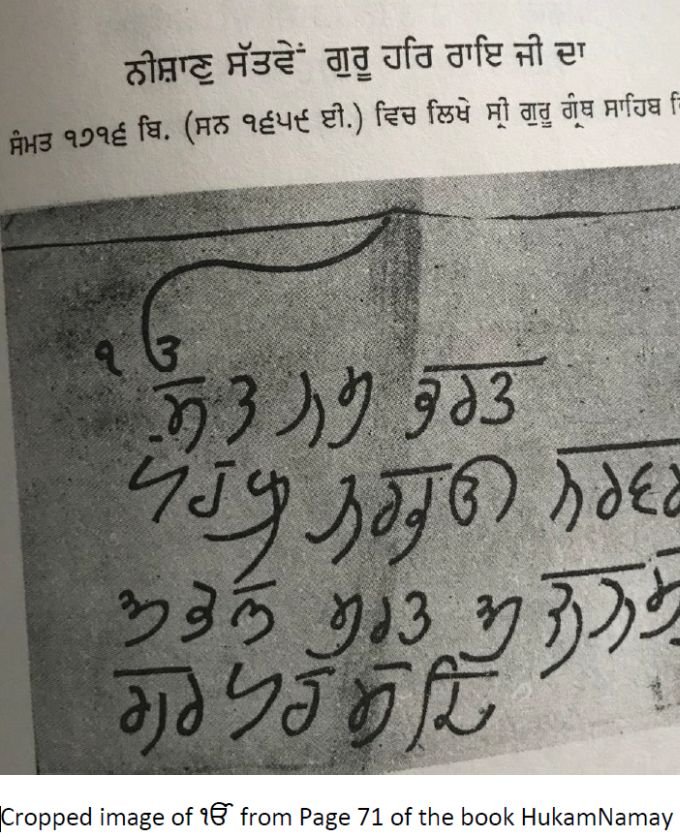 ਨੀਸ਼ਾਣੁ ਸੱਤਵੇਂ ਗੁਰੂ ਹਰਿ ਰਾਇ ਜੀ ਦਾ
ਸੰਮਤ ੧੭੧੬ ਬਿ. (ਸਨ ੧੬੫੯ ਈ.) ਵਿਚ ਲਿਖੇ ਸ੍ਰੀ ਗੁਰੂ ਗ੍ਰੰਥ ਸਾਹਿਬ
ੴ
ਸਤ ਨਮ ਕਰਤ
ਨਰਭਉ ਨਰਵਰ
ਅਕਲ ਮਰਤ
Cropped image of ੴ from Page 71 of the book HukamNamay